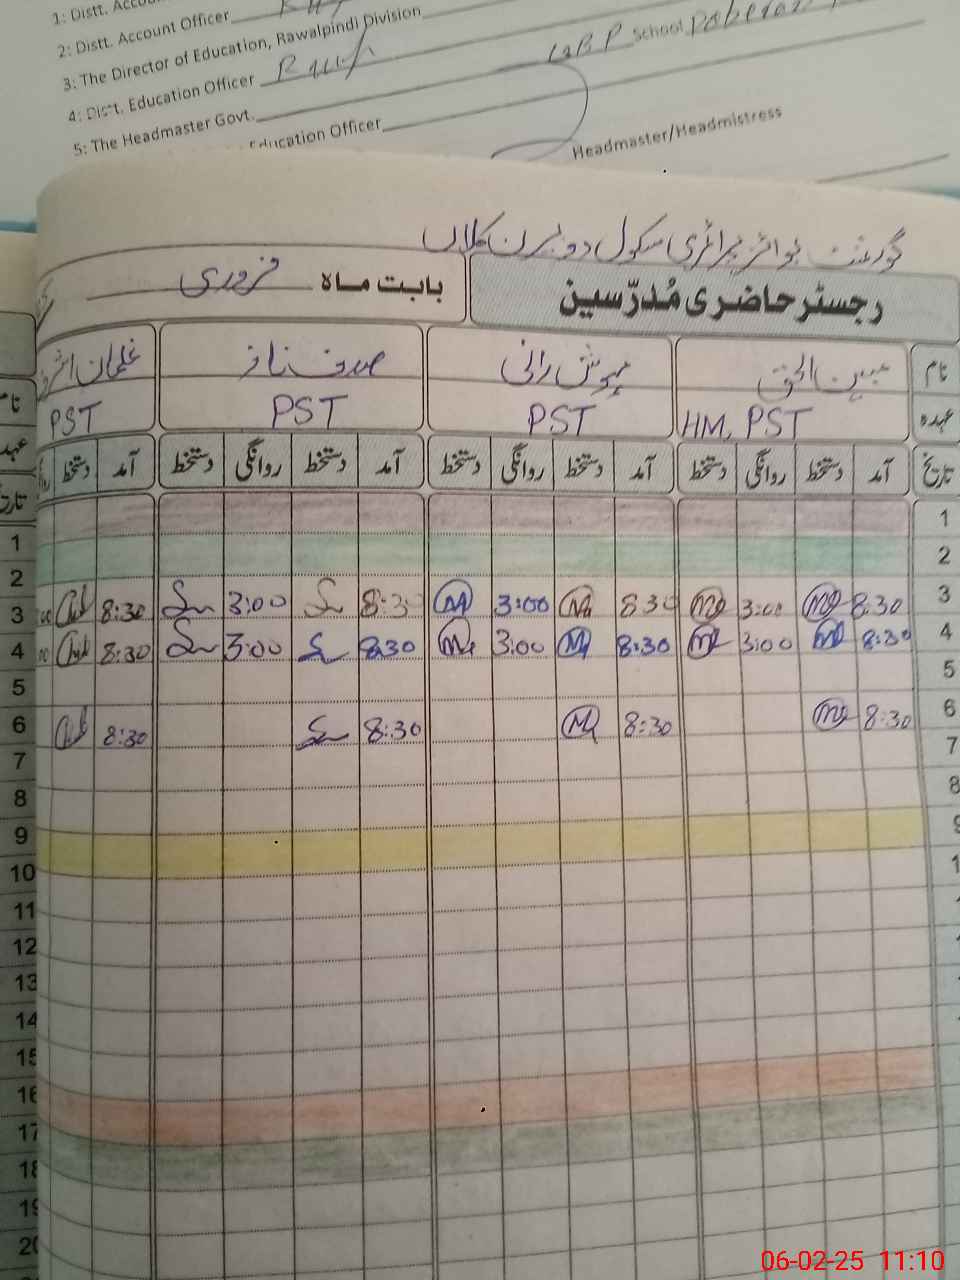 1: Distt. Accou
2: Distt. Account Officer
3: The Director of Education, Rawalpindi Division
4: Distt. Education Officer
5: The Headmaster Govt. GBP School
Education Officer
Headmaster/Headmistress
گورنمنٹ بوائز پرائمری سکول دوبیرن کلاں
رجسٹر حاضری مُدرّسین بابت ماہ فروری
نام مبین الحق مہوش رانی صدف ناز
عہدہ HM, PST PST PST PST
تاریخ آمد دستخط روانگی دستخط آمد دستخط روانگی دستخط آمد دستخط روانگی دستخط آمد دستخط
1
2
3 8:30 3:00 8:30 3:00 8:30 3:00 8:30
4 8:30 3:00 8:30 3:00 8:30 3:00 8:30
5
6 8:30 8:30 8:30 8:30
7
8
9
10
11
12
13
14
15
16
17
18
19
20
06-02-25 11:10